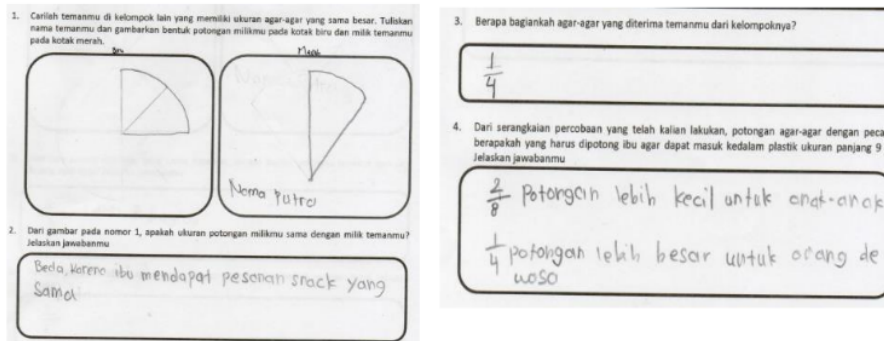 1. Carilah temanmu di kelompok lain yang memiliki ukuran agar-agar yang sama besar. Tuliskan
nama temanmu dan gambarkan bentuk potongan milikmu pada kotak biru dan milik temanmu
pada kotak merah.
Biru
Merah
Nama Putra
2. Dari gambar pada nomor 1, apakah ukuran potongan milikmu sama dengan milik temanmu?
Jelaskan jawabanmu
Beda, Karena ibu mendapat pesanan snack yang
Sama
3. Berapa bagiankah agar-agar yang diterima temanmu dari kelompoknya?
1/4
4. Dari serangkaian percobaan yang telah kalian lakukan, potongan agar-agar dengan peca
berapakah yang harus dipotong ibu agar dapat masuk kedalam plastik ukuran panjang 9
Jelaskan jawabanmu
2/8 Potongan lebih kecil untuk anak-anak
1/4 potongan lebih besar untuk orang de
woso